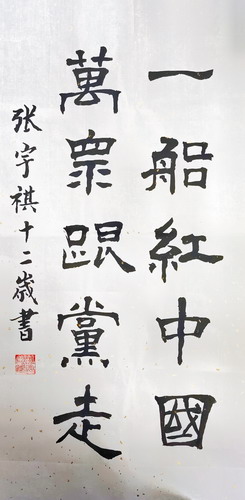 一船紅中國
萬眾跟黨走
张宇祺十二歲書